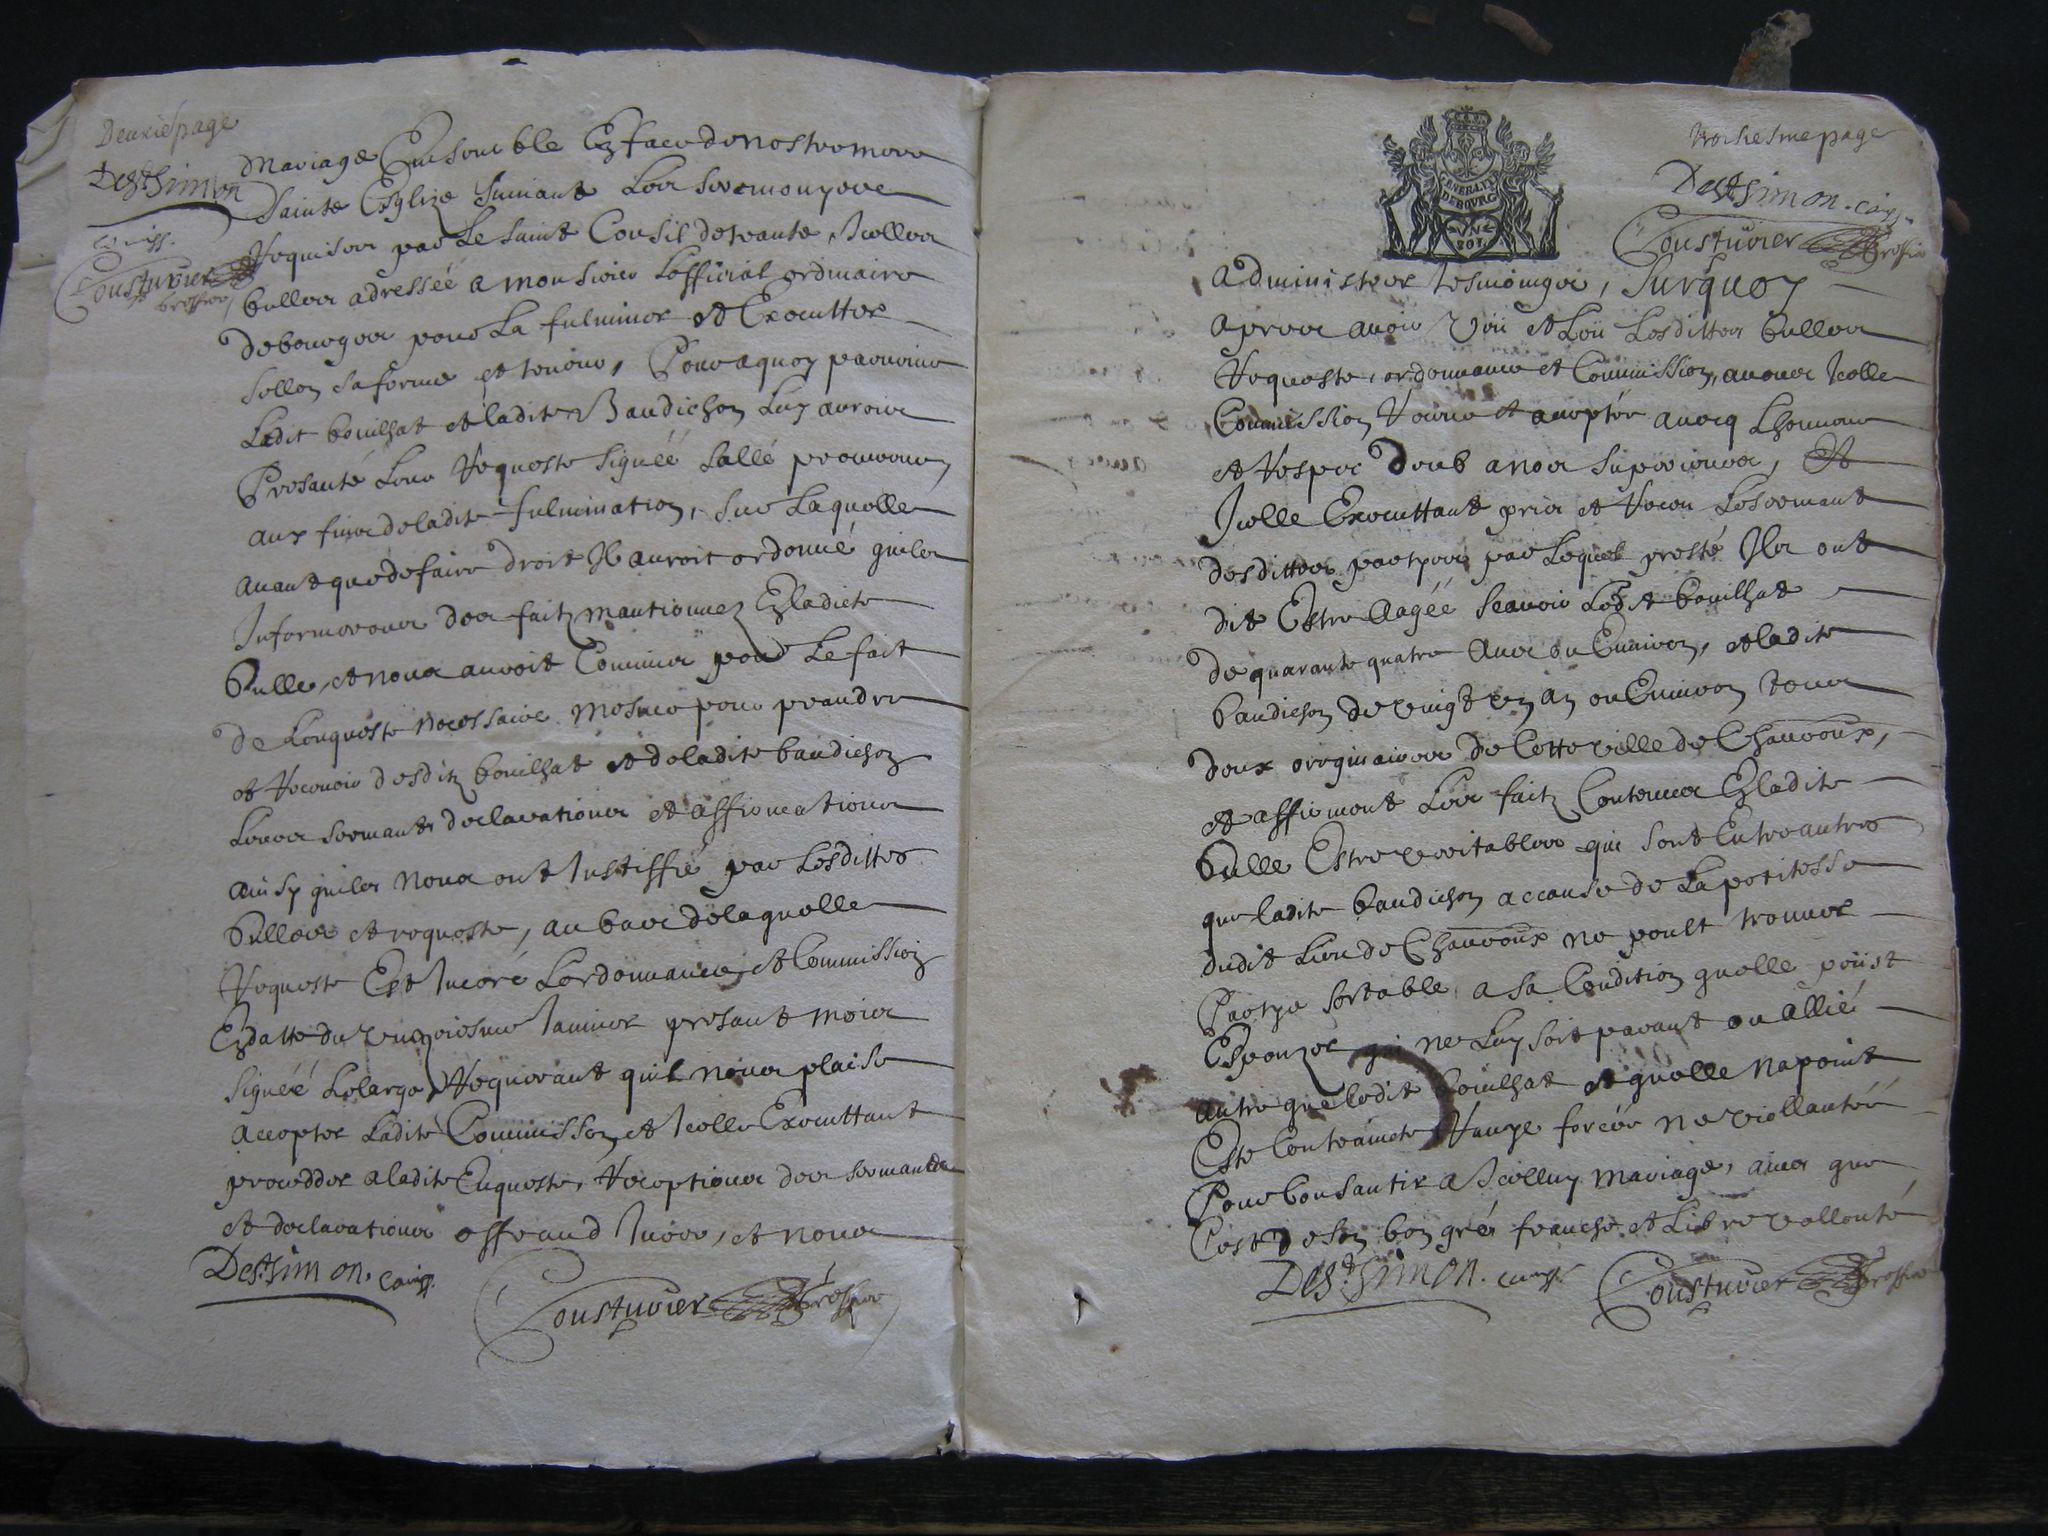 Deuxiè page
DesstSimon
Coustuvier
mariage Ensemble En face de nostre mere
Sainte Esglize suivant Les seremonyees
Requises par Le Saint Consil de trante, Icelles
bulles adressée a monsieur Lofficial ordinaire
de bourges pour La fulminer et Executter
sellon sa forme et teneur, Pour a quoy parvenir
Ledit bouilhat et ladite Baudichon Luy auroint
Presanté Leur Requeste signéé Sallé procureur,
aux fins de ladite fulmination, sur Laquelle
avant que de faire droit Il auroit ordonné quiles
Informeroient des faitz mantionnez En ladicte
Bulle, et nous auroit Commis pour Le fait
de Lenqueste necessaire mesme pour prandre
et Recevoir desditz bouilhat et de ladite baudichon
Leurs sermants declarations et affirmations
ainsy quiles nous ont Justiffié par Lesdittes
Bulles et requeste, au bas de laquelle
Requeste Est Incéré Lordonnance, et Commission
En datte du janvier presant mois
signéé Lelarge, Requerant quil nous plaise
accepter Ladite Commission, et Icelle Executtant
procedder a ladite Enqueste, Receptions des sermants
et declarations offrand Jurer, et nous
DesstSimon. Comiss.
Coustuvier
troisiesme page
DesstSimon. Comiss.
Coustuvier
GENERALITE
DE BOURG
administrer tesmoinges, Surquoy
apres avoir Veü et Leü Lesdittes bulles
Requeste, ordonnance et Commission, avons Icelle
Commission Receue et acceptée avecq Lhonneur
et Respec Deub a nos superieurs, Et
Icelle Executtant pris et Receu Le sermant
desdittes partyes par Lequel presté Ils ont
dit Estre aagéé Scavoir Ledit bouilhat
de quarante quatre ans ou Environ, et ladite
baudichon de vingt un an ou Environ tous
deux originaires de Cette ville de Chauroux,
et affirment Les faitz Contenus En ladite
Bulle Estre veritables qui sont Entre autres
que ladite baudichon a cause de La petitesse
dudit Lieu de Chauroux ne peult trouver
Partye sortable a sa Condition quelle peüst
Espouzer qui ne Luy soit parant ou allié
autre que ledit bouilhat et quelle na point
Esté Contrainte Ravye forcée ne viollantéé
Pour Consantir a Icelluy mariage, ains que
Cest de son bon gré franche et Libre vollonté
DesstSimon. Comiss.
Coustuvier